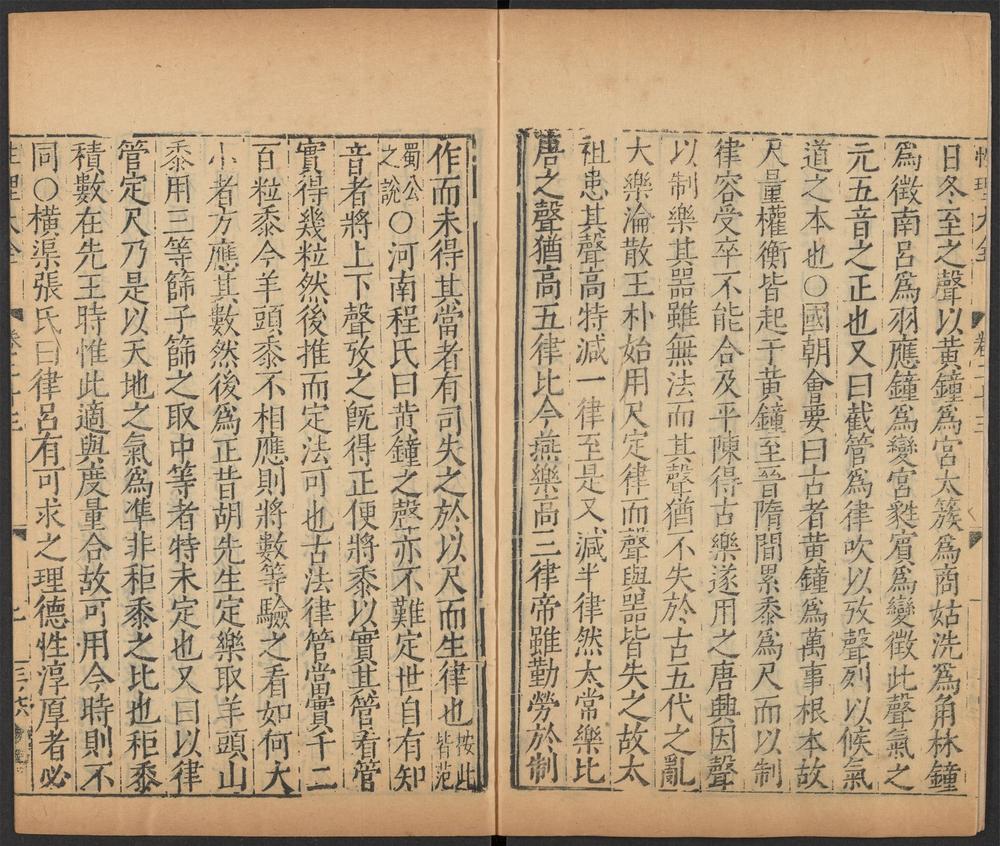 性理大全 卷二十三
日冬至之聲以黃鐘爲宮太簇爲商姑洗爲角林鐘
爲徵南呂爲羽應鐘爲變宮蕤賓爲變徵此聲氣之
元五音之正也又曰截管爲律吹以攷聲列以候氣
道之本也○國朝會要曰古者黃鐘爲萬事根本故
尺量權衡皆起于黃鐘至晉隋間累黍爲尺而以制
律容受卒不能合及平陳得古樂遂用之唐興因聲
以制樂其器雖無法而其聲猶不失於古五代之亂
大樂淪散王朴始用尺定律而聲與器皆失之故太
祖患其聲高特減一律至是又減半律然太常樂比
唐之聲猶高五律比今燕樂高三律帝雖勤勞於制
作而未得其當者有司失之於以尺而生律也按此皆范
蜀公之說○河南程氏曰黃鐘之聲亦不難定世自有知
音者將上下聲攷之旣得正便將黍以實其管看管
實得幾粒然後推而定法可也古法律管當實千二
百粒黍今羊頭黍不相應則將數等驗之看如何大
小者方應其數然後爲正昔胡先生定樂取羊頭山
黍用三等篩子篩之取中等者特未定也又曰以律
管定尺乃是以天地之氣爲準非秬黍之比也秬黍
積數在先王時惟此適與度量合故可用今時則不
同○橫渠張氏曰律呂有可求之理德性淳厚者必
性理大全 卷二十三